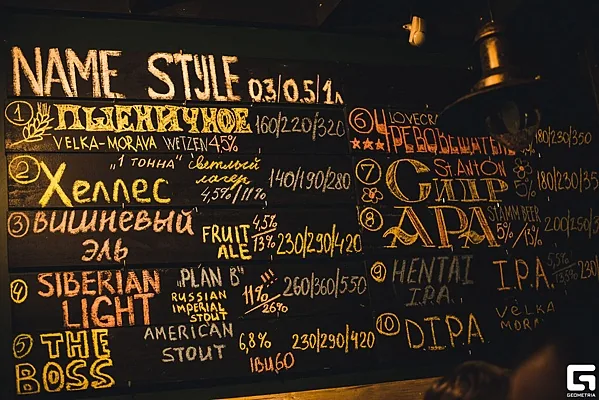 NAME STYLE 0.3/0.5/1л
① ПШЕНИЧНОЕ 160/220/320
VELKA-MORAVA WEIZEN 4,5%
② Хеллес "1 ТОННА" светлый лагер 4,5%/11% 140/190/280
③ ВИШНЕВЫЙ ЭЛЬ FRUIT ALE 4,5% 13% 230/290/420
④ SIBERIAN LIGHT "PLAN B" RUSSIAN IMPERIAL STOUT 11%!!! 26% 260/360/550
⑤ THE BOSS AMERICAN STOUT 6,8% IBU60 230/290/420
⑥ LOVECR
ЧРЕВОВЕЩАТЕЛЬ 180/230/350
⑦ STANTON
Сидр 5% 180/230/35
⑧ APA STAMM BEER 5%/13% 200/250/3
⑨ HENTAI I.P.A. I.P.A. 5,5% 13,5% 230/
⑩ DIPA VELKA MORA
GEOMETRIA